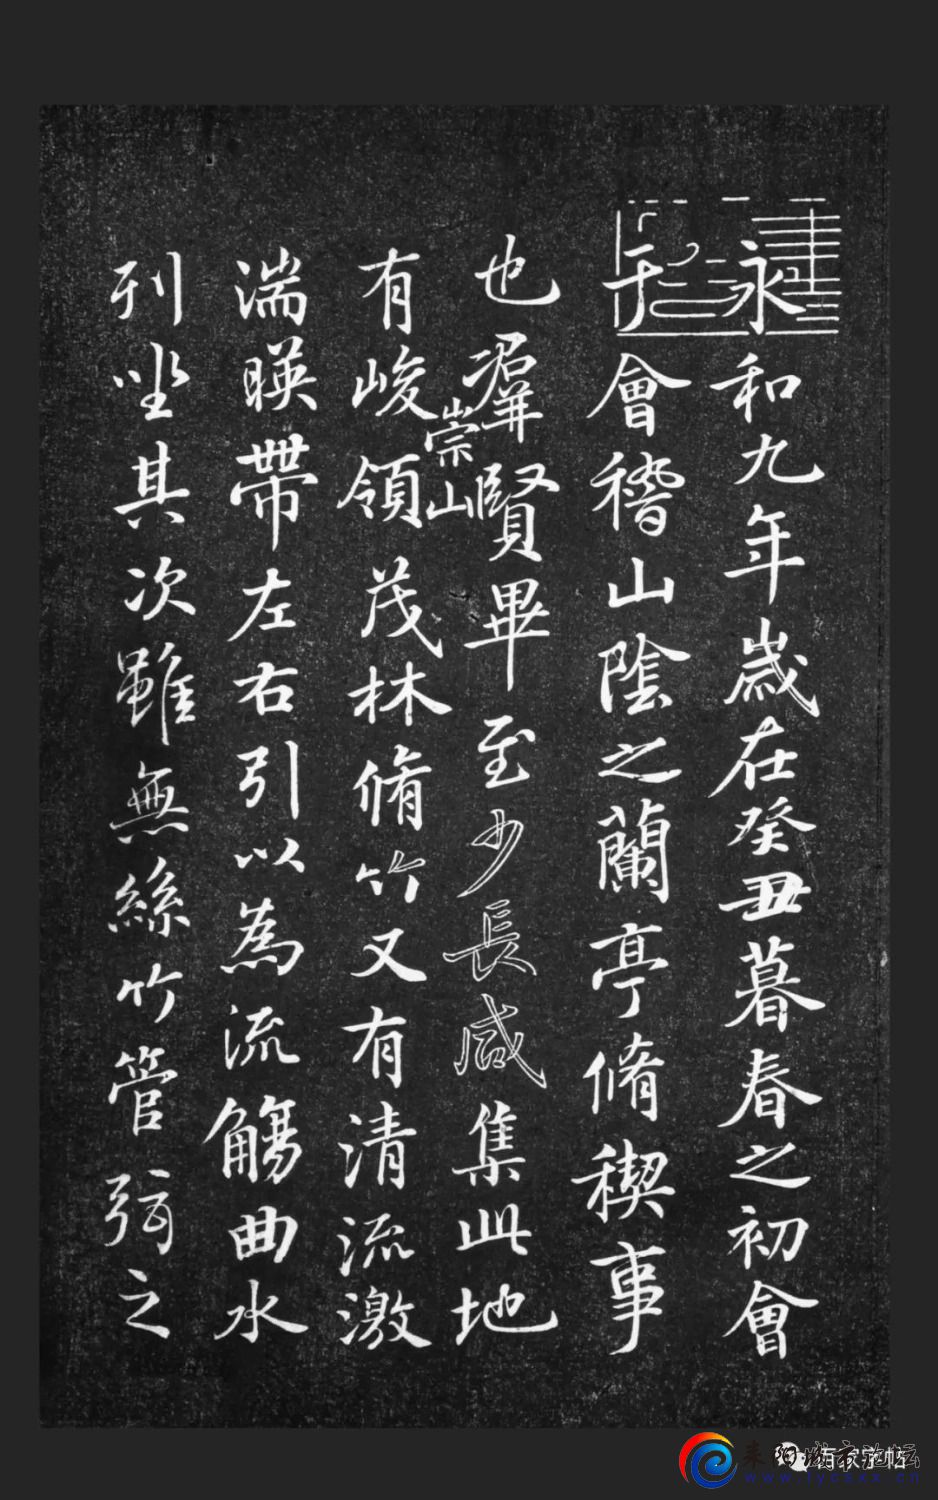 永和九年歲在癸丑暮春之初會
于會稽山陰之蘭亭脩稧事
也羣賢畢至少長咸集此地
崇山
有峻領茂林脩竹又有清流激
湍暎帶左右引以為流觴曲水
列坐其次雖無絲竹管弦之
耒阳城市论坛